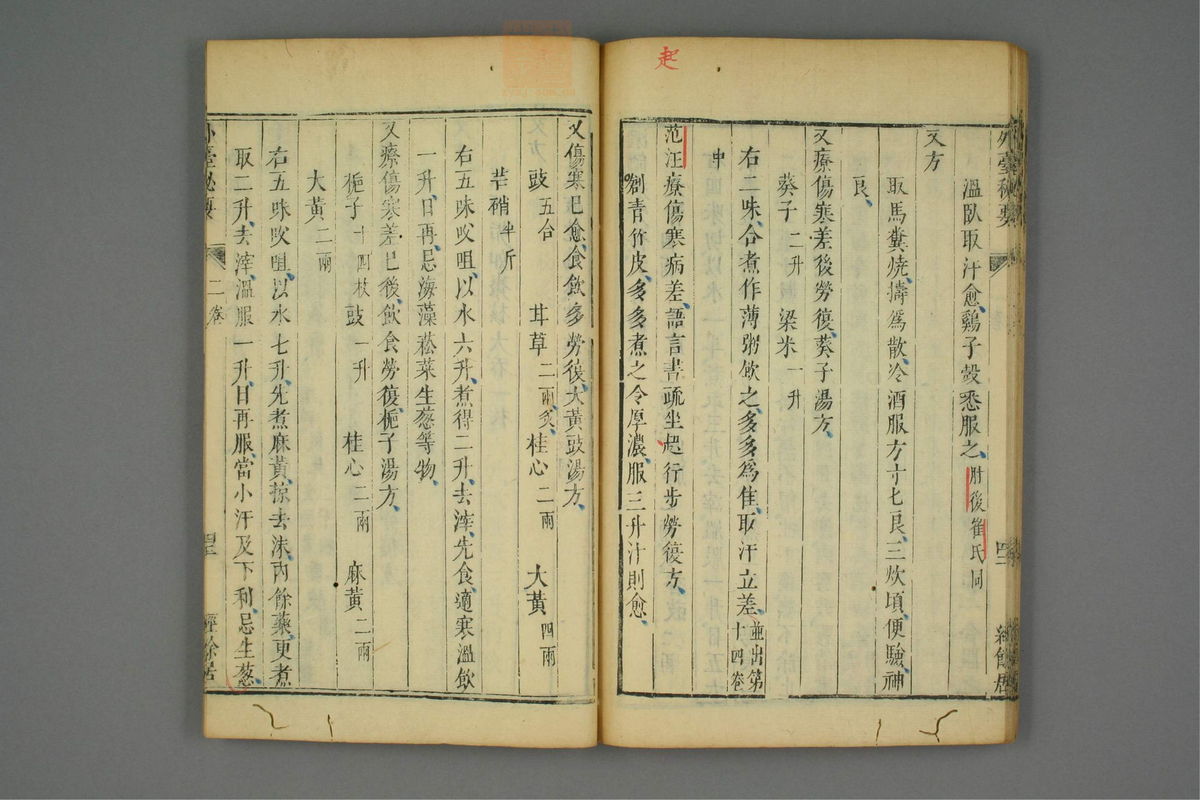 起
外臺秘要
四二
經餘居
溫臥取汗愈雞子殼悉服之肘後崔氏同
又方
取馬糞燒擣爲散冷酒服方寸七良三炊頃便驗神
良
又療傷寒差後勞復葵子湯方
葵子二升 梁米一升
右二味合煮作薄粥飲之多多爲佳取汗立差並出第十四卷
中
范汪療傷寒病差語言書疏坐起行步勞復方
刮青竹皮多多煮之令厚濃服三升汁則愈
又傷寒已愈食飲多勞復大黃豉湯方
豉五合 甘草二兩炙 桂心二兩 大黃四兩
芒硝半斤
右五味㕮咀以水六升煮得二升去滓先食適寒溫飲
一升日再忌海藻菘菜生葱等物
又療傷寒差已後飲食勞復梔子湯方
梔子十四枚 豉一升 桂心二兩 麻黃二兩
大黃二兩
右五味㕮咀以水七升先煮麻黃掠去沫內餘藥更煮
取二升去滓溫服一升日再服當小汗及下利忌生葱
外臺秘要
二卷
四二
經餘居